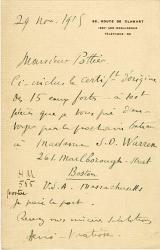 29 nov. 1915
92, ROUTE DE CLAMART
ISSY-LES-MOULINEAUX
Monsieur Pottier
Ci-inclus le certificat d'origine
des 15 eaux fortes - à
pièce que je vous prie d'en-
voyer par le prochain bateau
à Madame S.D. Warren
261 Marlborough Street
Boston
U.S.A. Massachusetts
H M
585
je paie le port.
Recevez mes salutations
Henri-Matisse